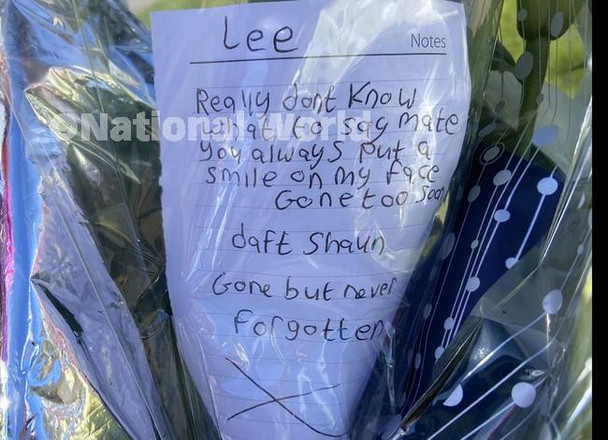 Lee
Notes
Really dont know
what to say mate
you always put a
smile on my face
Gone too soon
daft Shaun
Gone but never
forgotten
X
©National World